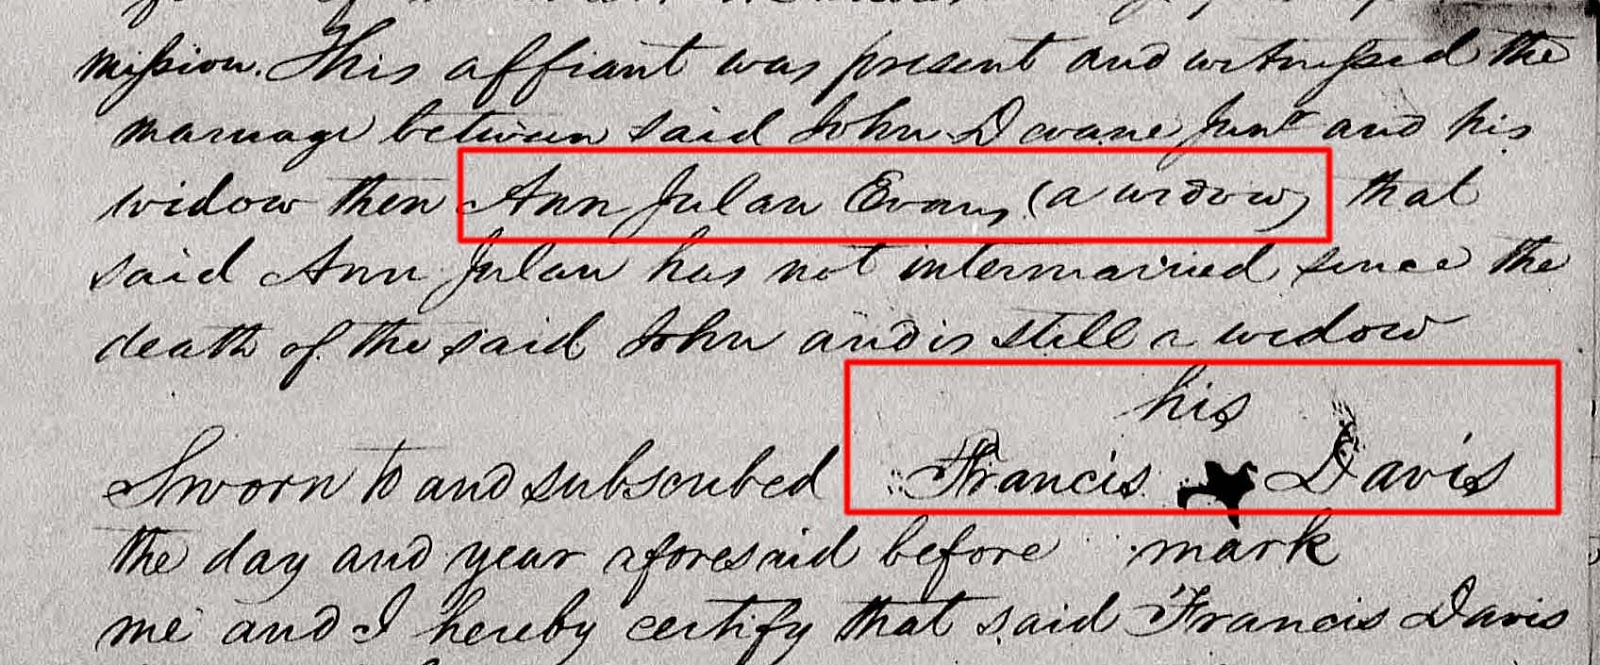 mission. This affiant was present and witnessed the
marriage between said John Devane Junr and his
widow then Ann Julan Evans (a widow) that
said Ann Julan has not intermarried since the
death of the said John and is still a widow
his
Sworn to and subscribed Francis Davis
the day and year aforesaid before mark
me and I hereby certify that said Francis Davis